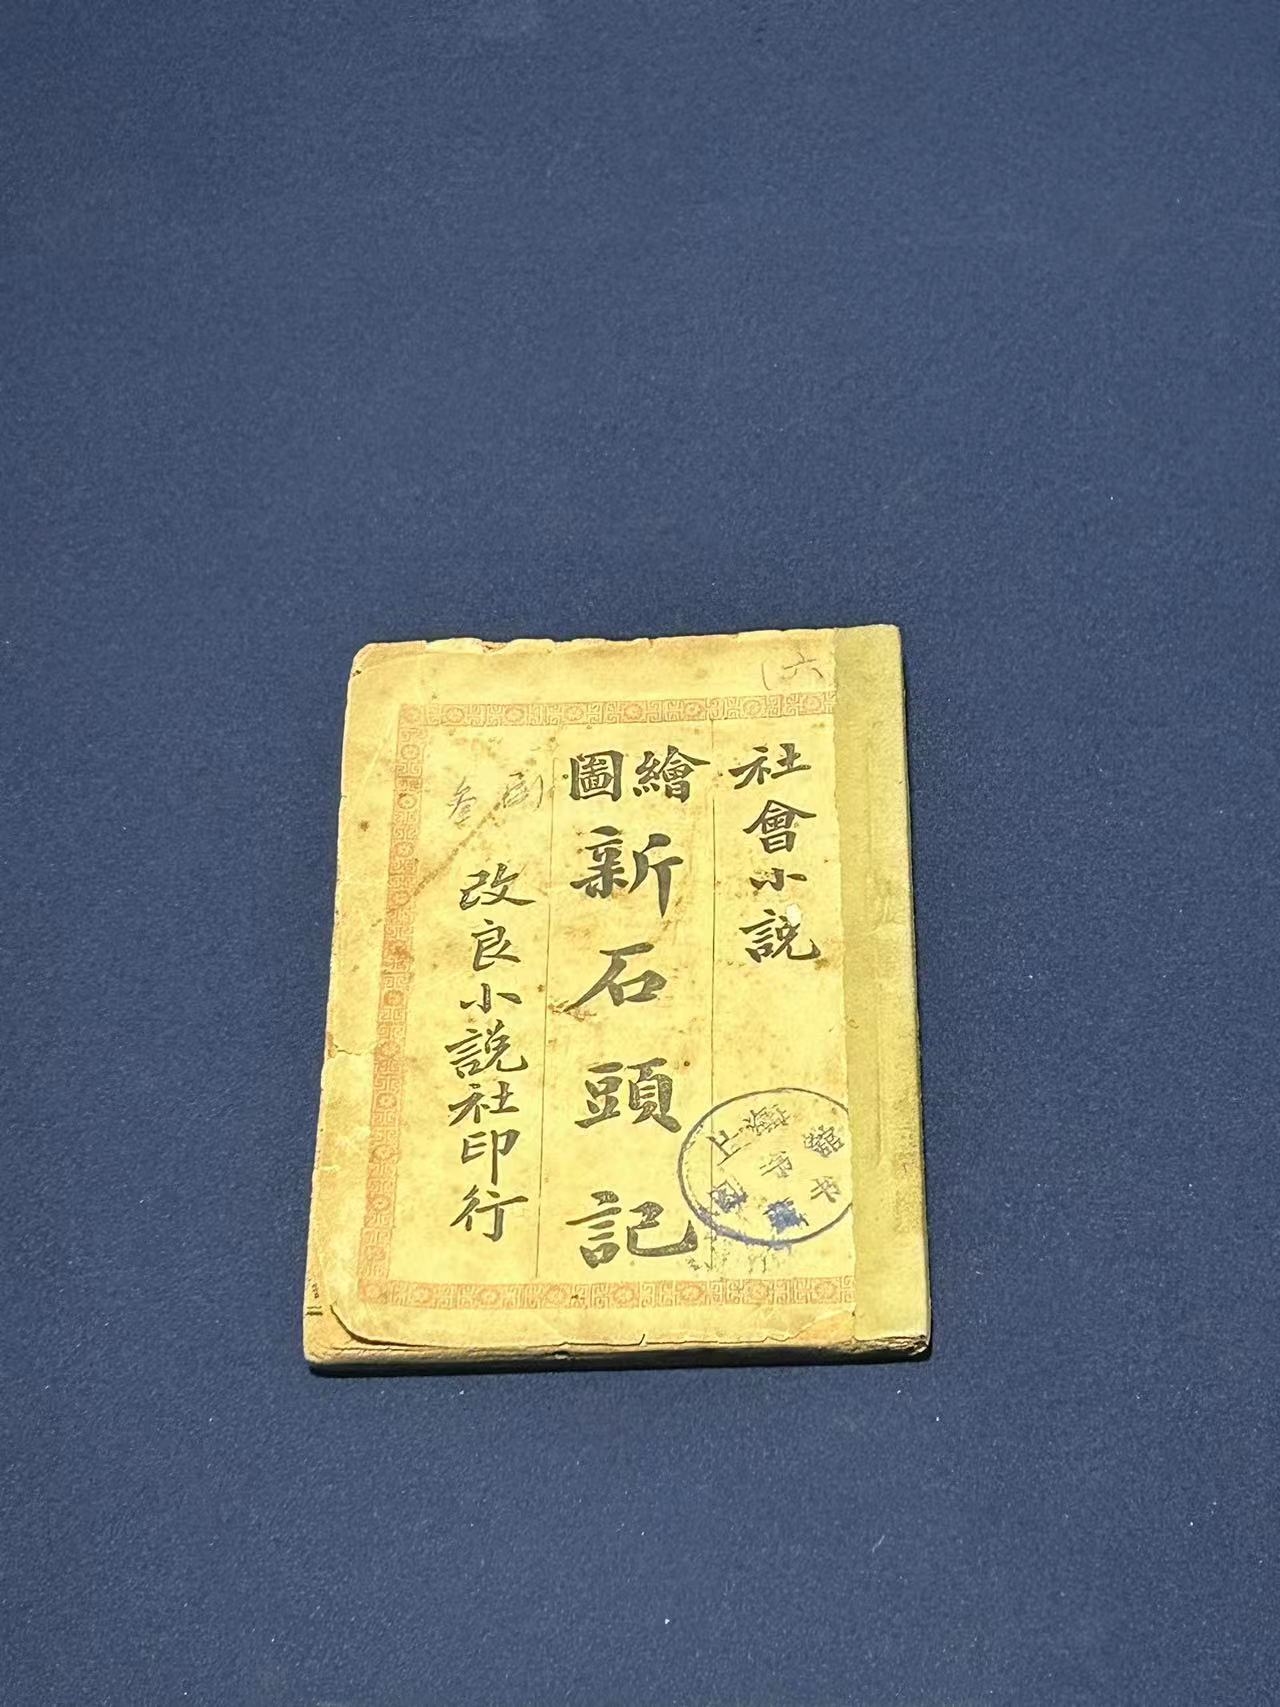 六
社會小說
繪圖
新石頭記
改良小說社印行